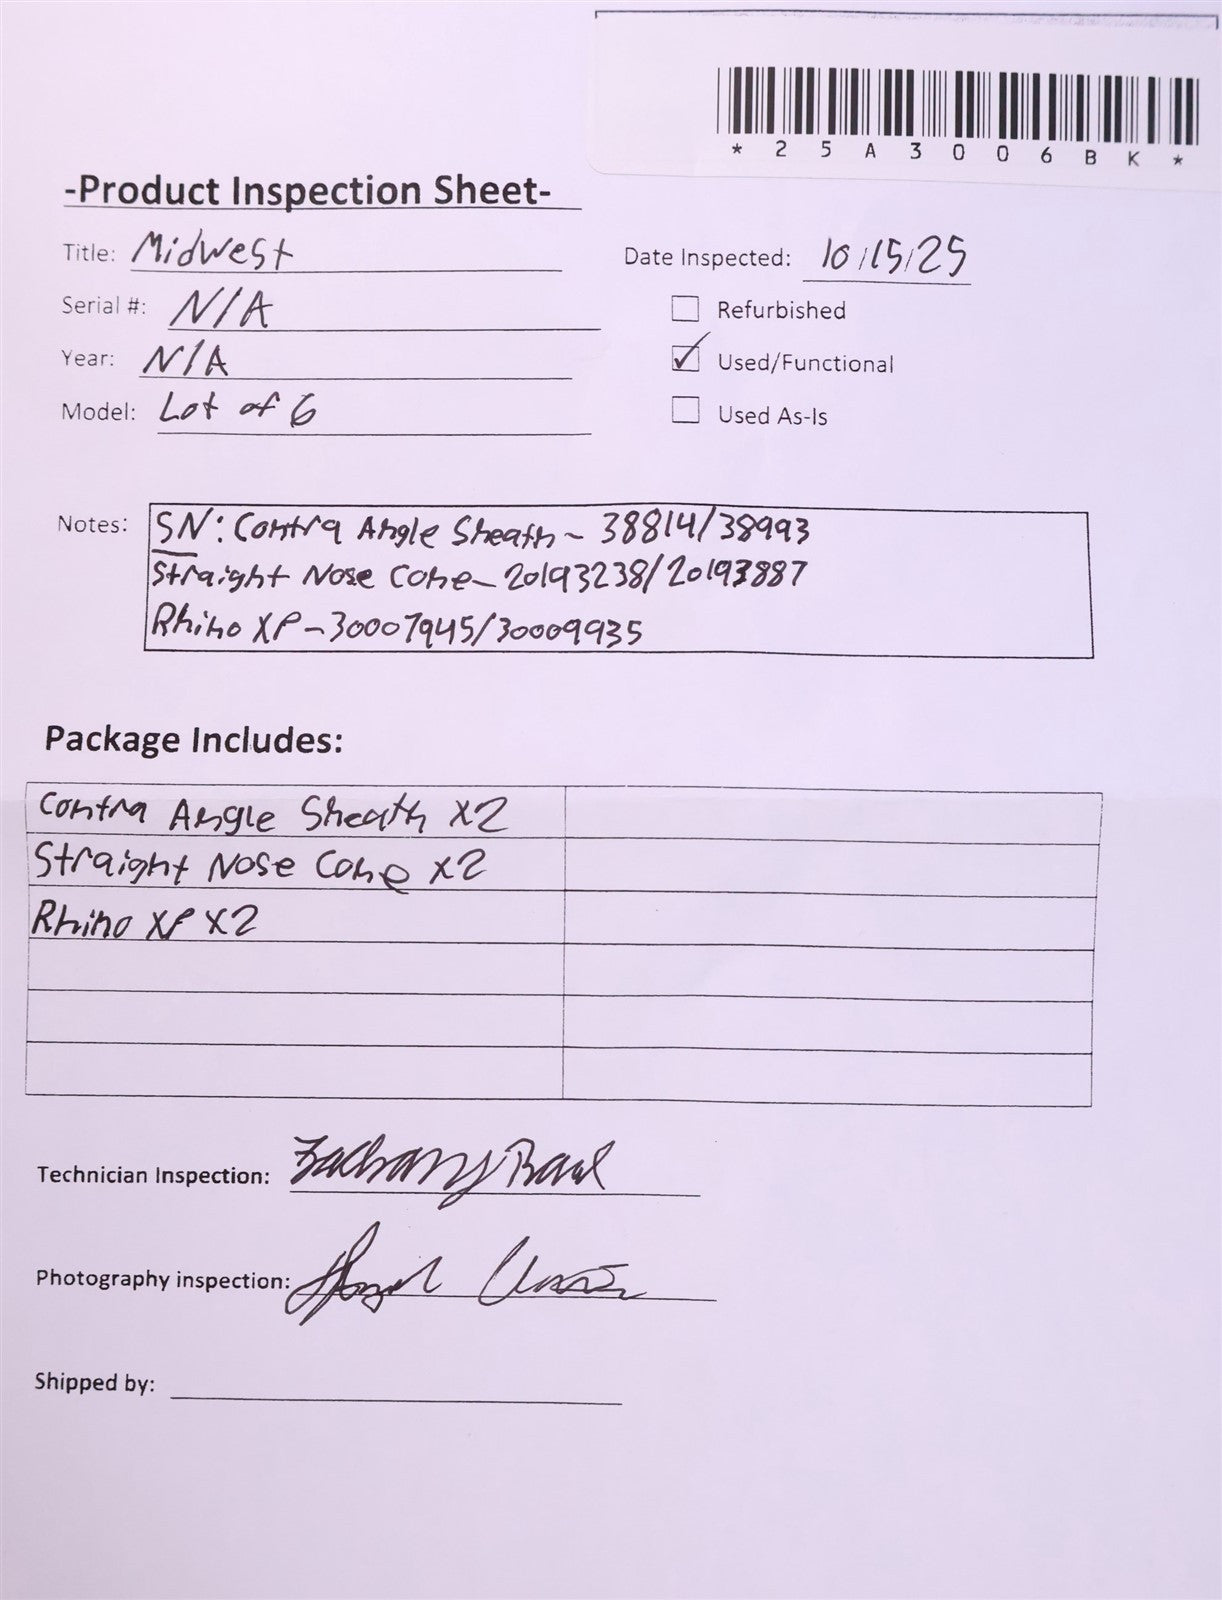 *25A3006BK*
-Product Inspection Sheet-
Title: Midwest
Date Inspected: 10/15/25
Serial #: N/A
Refurbished
Year: N/A
Used/Functional
Model: Lot of 6
Used As-Is
Notes: SN: Contra Angle Sheath - 38814/38993
Straight Nose Cone - 20193238/20193887
Rhino XP - 30007945/30009935
Package Includes:
Contra Angle Sheath X2
Straight Nose Cone X2
Rhino XP X2
Technician Inspection: Zachary
Photography inspection:
Shipped by: